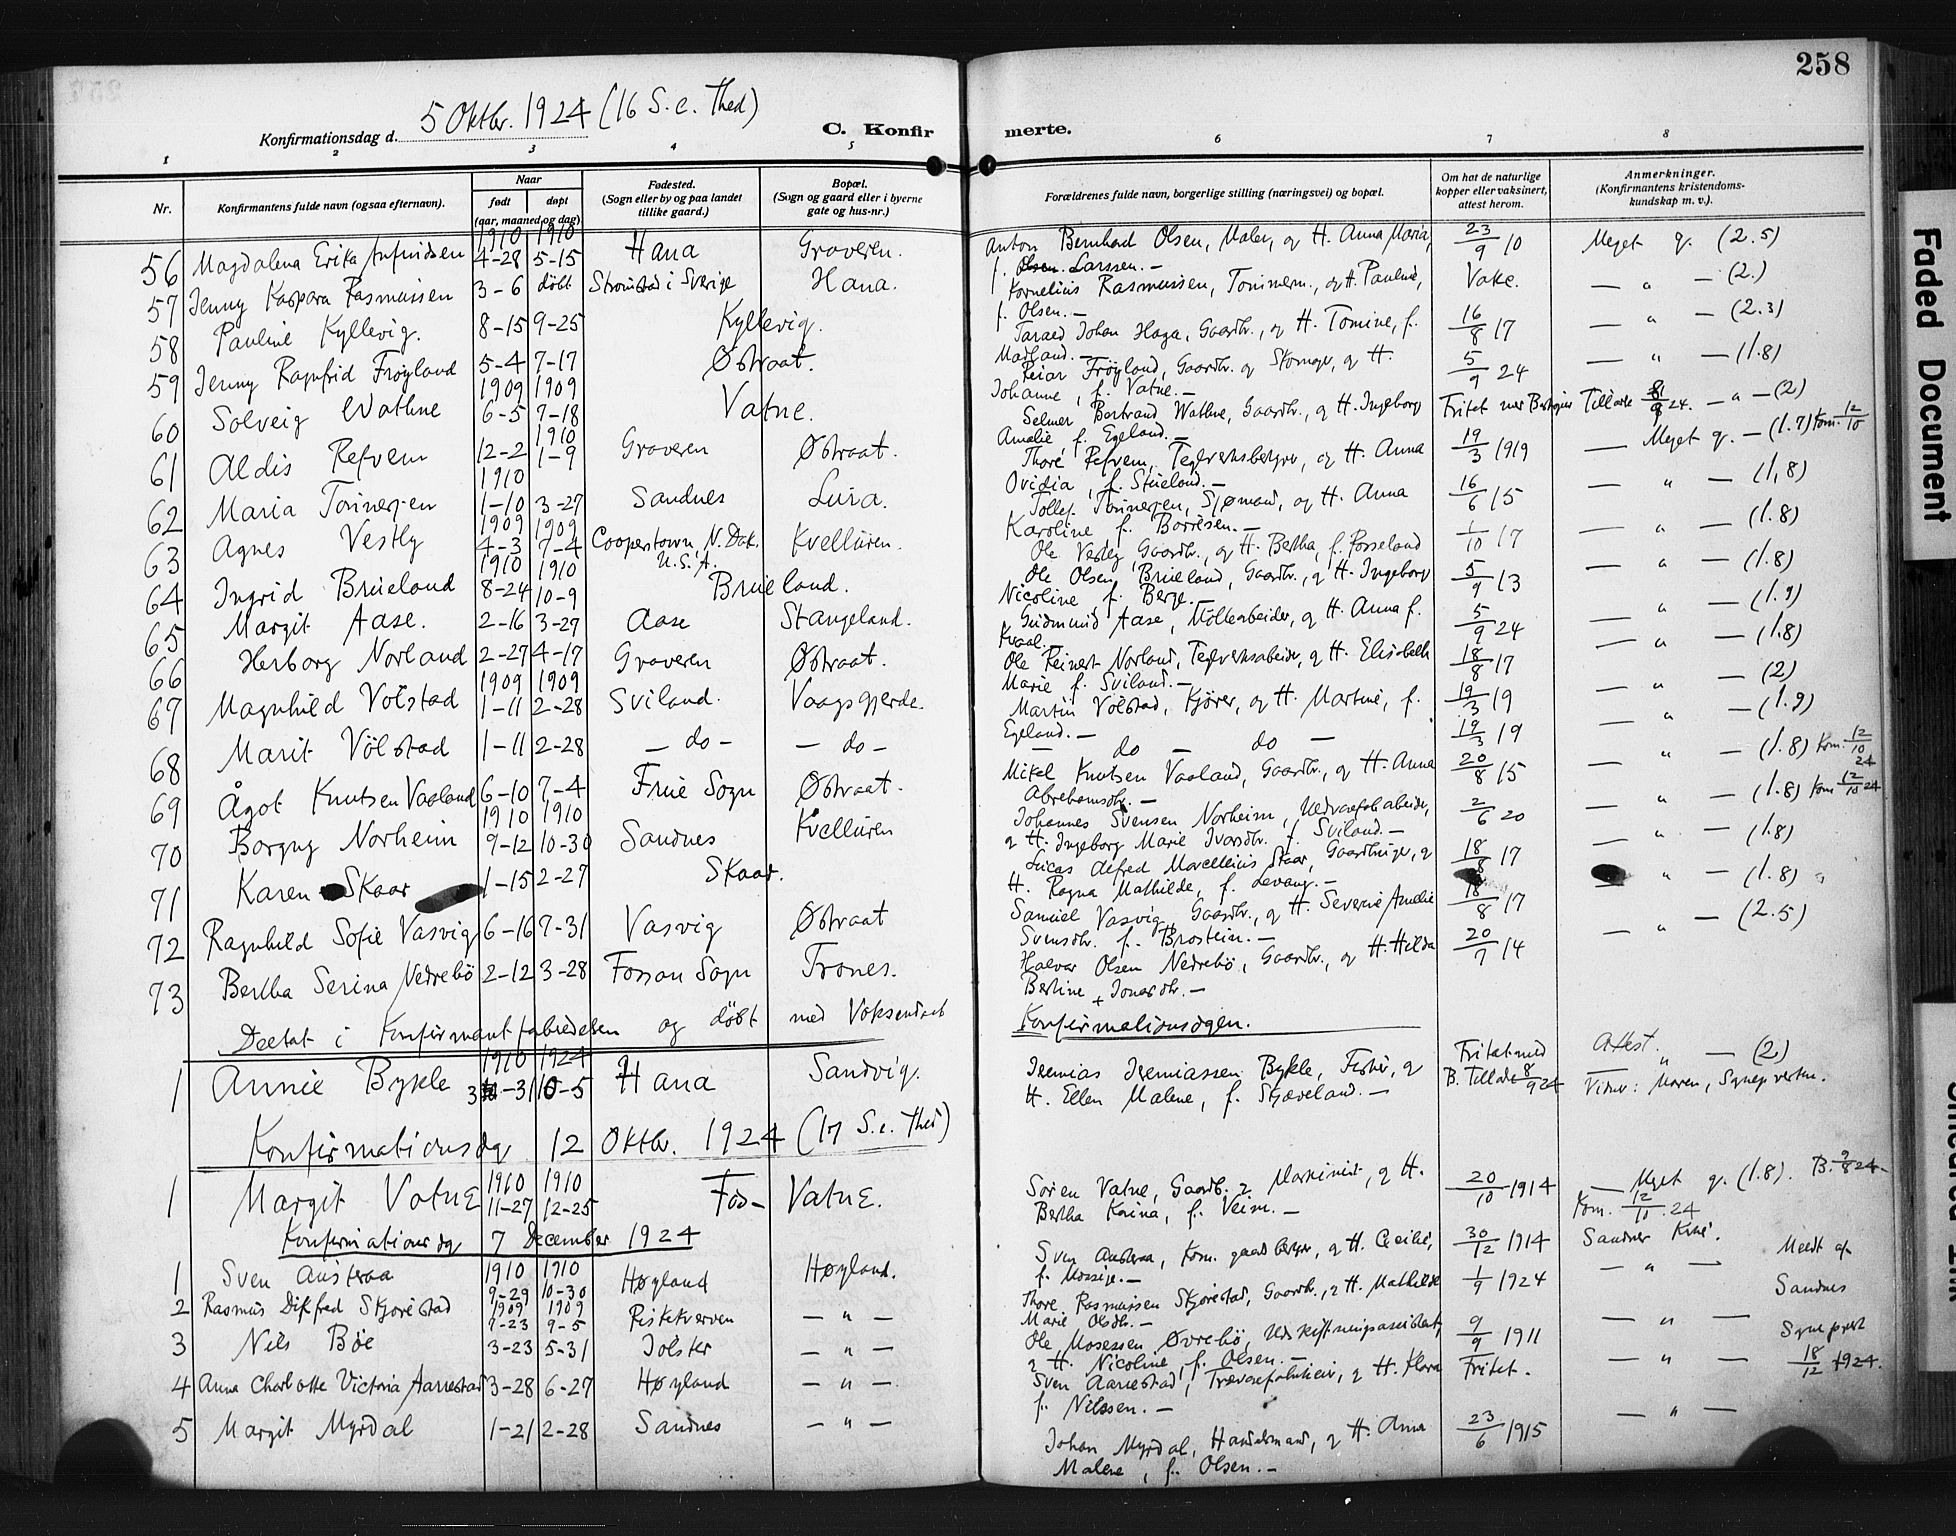 258
5 Oktbr. 1924 (16 S. e. Thed)
Konfirmationsdag d.
C. Konfirmerte.
1 2 3 4 5 6 7 8
Nr.
Konfirmantens fulde navn (ogsaa efternavn).
Naar
født døpt
(aar, maaned og dag)
Fødested.
(Sogn eller by og paa landet
tillike gaard.)
Bopæl.
(Sogn og gaard eller i byerne
gate og hus-nr.)
Forældrenes fulde navn, borgerlige stilling (næringsvei) og bopæl.
Om hat de naturlige
kopper eller vaksinert,
attest herom.
Anmerkninger.
(Konfirmantens kristendoms-
kundskap m. v.).
1910 1910
56 Magdalena Erika 4-28 5-15 Hana Graveren. Anton Bernhard Olsen, Maler, og H. Anna Maria, 23/9 10 Meget g. (2.5)
f. Larssen. -
57 Jenny Kaspara Rasmussen 3-6 døbt Strømstad i Sverige Hana. Kornelius Rasmussen, Tømmerm., og H. Pauline, Vakc. — " — (2.)
f. Olsen. -
58 Pauline Kyllevig. 8-15 9-25 Kyllevig. Taraed Johan Haga, Gaardbr., og H. Tomine, f. 16/8 17 — " — (2.3)
Madland. -
59 Jenny Ragnfrid Frøyland 5-4 7-17 Østraat. Reiar Frøyland, Gaardbr. og Skomager, og H. 5/9 24 — " — (1.8)
Johanne, f. Vatne. -
1909 1909
60 Solveig Wathne 6-5 7-18 Vatne. Selmer Bertrand Wathne, Gaardbr., og H. Ingeborg Fritat 24. — " — (2)
Amalie f. Egeland. -
1910
61 Aldis Refvem 12-2 1-9 Graveren Østraat. Thore Refvem, Teglverksbestyrer, og H. Anna 19/3 1919 — Meget g. — (1.7) Kom. 12/10
Ovidia, f. Stueland. -
1910
62 Maria Tønnesen 1-10 3-27 Sandnes Lura. Tollef Tønnesen, Sjømand, og H. Anna 16/6 15 — " — (1,8)
Karoline f. Borresen. -
1909 1909
63 Agnes Vestly 4-3 7-4 Cooperstown, N. Dak. U.S.A. Kvelluren. Ole Vestly, Gaardbr., og H. Bertha, f. Fosseland 1/10 17 — " — (1.8)
1910 1910
64 Ingrid Brueland 8-24 10-9 Brueland. Ole Olsen Brueland, Gaardbr., og H. Ingeborg 5/9 13 — " — (1.8)
Nicoline f. Berge. -
65 Margit Aase. 2-16 3-29 Aase Stangeland. Gudmund Aase, Møllearbeider, og H. Anna f. 5/9 24 — " — (1.9)
Kvaal.
66 Herborg Norland 2-27 4-17 Graveren Østraat. Ole Reinert Norland, Teglverksarbeider, og H. Elisabeth 18/8 17 — " — (1.8)
Marie f. Sviland. -
1909 1909
67 Magnhild Völstad 1-11 2-28 Sviland. Vaagsgjerde. Martin Völstad, Kjører, og H. Martine, f. 19/3 19 — " — (2)
Egeland. -
68 Marit Völstad 1-11 2-28 — do — — do — — do — do — 19/3 19 — " — (1.9)
69 Ågot Knutsen Vaaland 6-10 7-4 Frue Sogn Østraat. Mikel Knutsen Vaaland, Gaardbr., og H. Anna 20/8 15 — " — (1.8) Kom. 12/10 24
Abrahamsdtr. -
1910 1910
70 Borgny Norheim 9-12 10-30 Sandnes Kvelluren Johannes Svensen Norheim, Uldvarefabr.arbeider, 2/6 20 — " — (1.8) Kom 12/10 24
og H. Ingeborg Marie Ivarsdtr. f. Sviland. -
71 Karen Skaar 1-15 2-27 Skaar. Lucas Alfred Marcellius Skaar, Gaardbruger, og 18/8 17 — " — (1.8)
H. Ragna Mathilde, f. Levang. -
72 Ragnhild Sofie Vasvig 6-16 7-31 Vasvig Østraat Samuel Vasvig, Gaardbr., og H. Severine Amalie 18/8 17 — " — (1.8)
Svensdtr. f. Brostein. -
73 Bertha Serina Nedrebö 2-12 3-28 Fossan Sogn Trones. Halvar Olsen Nedrebö, Gaardbr., og H. Hilda 20/7 14 — " — (2.5)
Bertine Jonasdtr. -
Deeltat i Konfirmantforberedelsen og döbt med Voksendaab Konfirmationsdgen.
1910 1924
1 Annie Bykle 3-31 10-5 Hana Sandvig. Jeremias Jeremiassen Bykle, Fisker, og Fritat med Attest. " — (2.)
H. Ellen Malene, f. Skjæveland. - B. Tillade 8/9 24 Vidner: Moren, Sognepresten.
Konfirmationsdg 12 Oktbr. 1924 (17 S. e. Thed)
1910 1910
1 Margit Vatne 11-27 12-25 Fos- Vatne. Søren Vatne, Gaardb. og Maskinist, og H. 20/10 1914 — Meget g. (1.8). B. 9/8 24
Bertha Karina, f. Veim. - Kom. 12/10. 24
Konfirmationsdg 7 December 1924
1910 1910
1 Sven Austraa 9-29 10-30 Høyland Høyland. Sven Austraa, Kom. gaardbruger, og H. Cecilie, 30/12 1914 Sandnes Kirke.
f. Mossige. -
1909 1909
2 Rasmus Ditfred Skjørestad 7-23 9-5 Riskekverven — " — Thore Rasmussen Skjørestad, Gaardbr., og H. Mathilde 1/9 1924 — " — Meldt af
Marie Olsdtr. -
3 Nils Böe 3-23 5-31 Jolster — " — Ole Mosessen Øvrebö, Udskiftningsassistent, 9/9 1911 — " — Sandnes
og H. Nicoline, f. Olsen. -
4 Anna Charlotte Victoria Aarrestad 3-28 6-27 Høyland — " — Sven Aarrestad, Trævarefabrikeier, og H. Klara Fritat. — " — Sogneprest
f. Nilssen. - 18/12 1924.
5 Margit Myrdal 1-21 2-28 Sandnes — " — Johan Myrdal, Handelsmand, og H. Anna 23/6 1915 — " —
Malene, f. Olsen. -
Faded Document